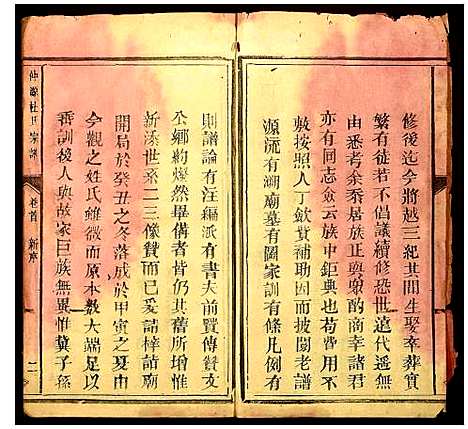 修後迄今將越三紀其間生娶卒葬實
繁有徒若不倡議續修恐世遠代遥無
由悉者余忝居族正與衆酌商幸諸君
亦有同志僉云族中鉅典也苟皆用本
敷按照人丁歛貲補助因而披閱老譜
源流有溯廟墓有圖家訓有條凡例有
則譜論有注編派有書夫前賢傳贊文
公鄉約燦然畢備者皆仍其舊所增惟
新添世系二三像贊而已爰諸梓請廟
開局於癸丑之冬落成於甲寅之夏由
今觀之姓氏雖微而原本數大端足以
垂訓後人與故家巨族無異惟冀子孫
仲源杜氏宗譜
卷首
新序
二